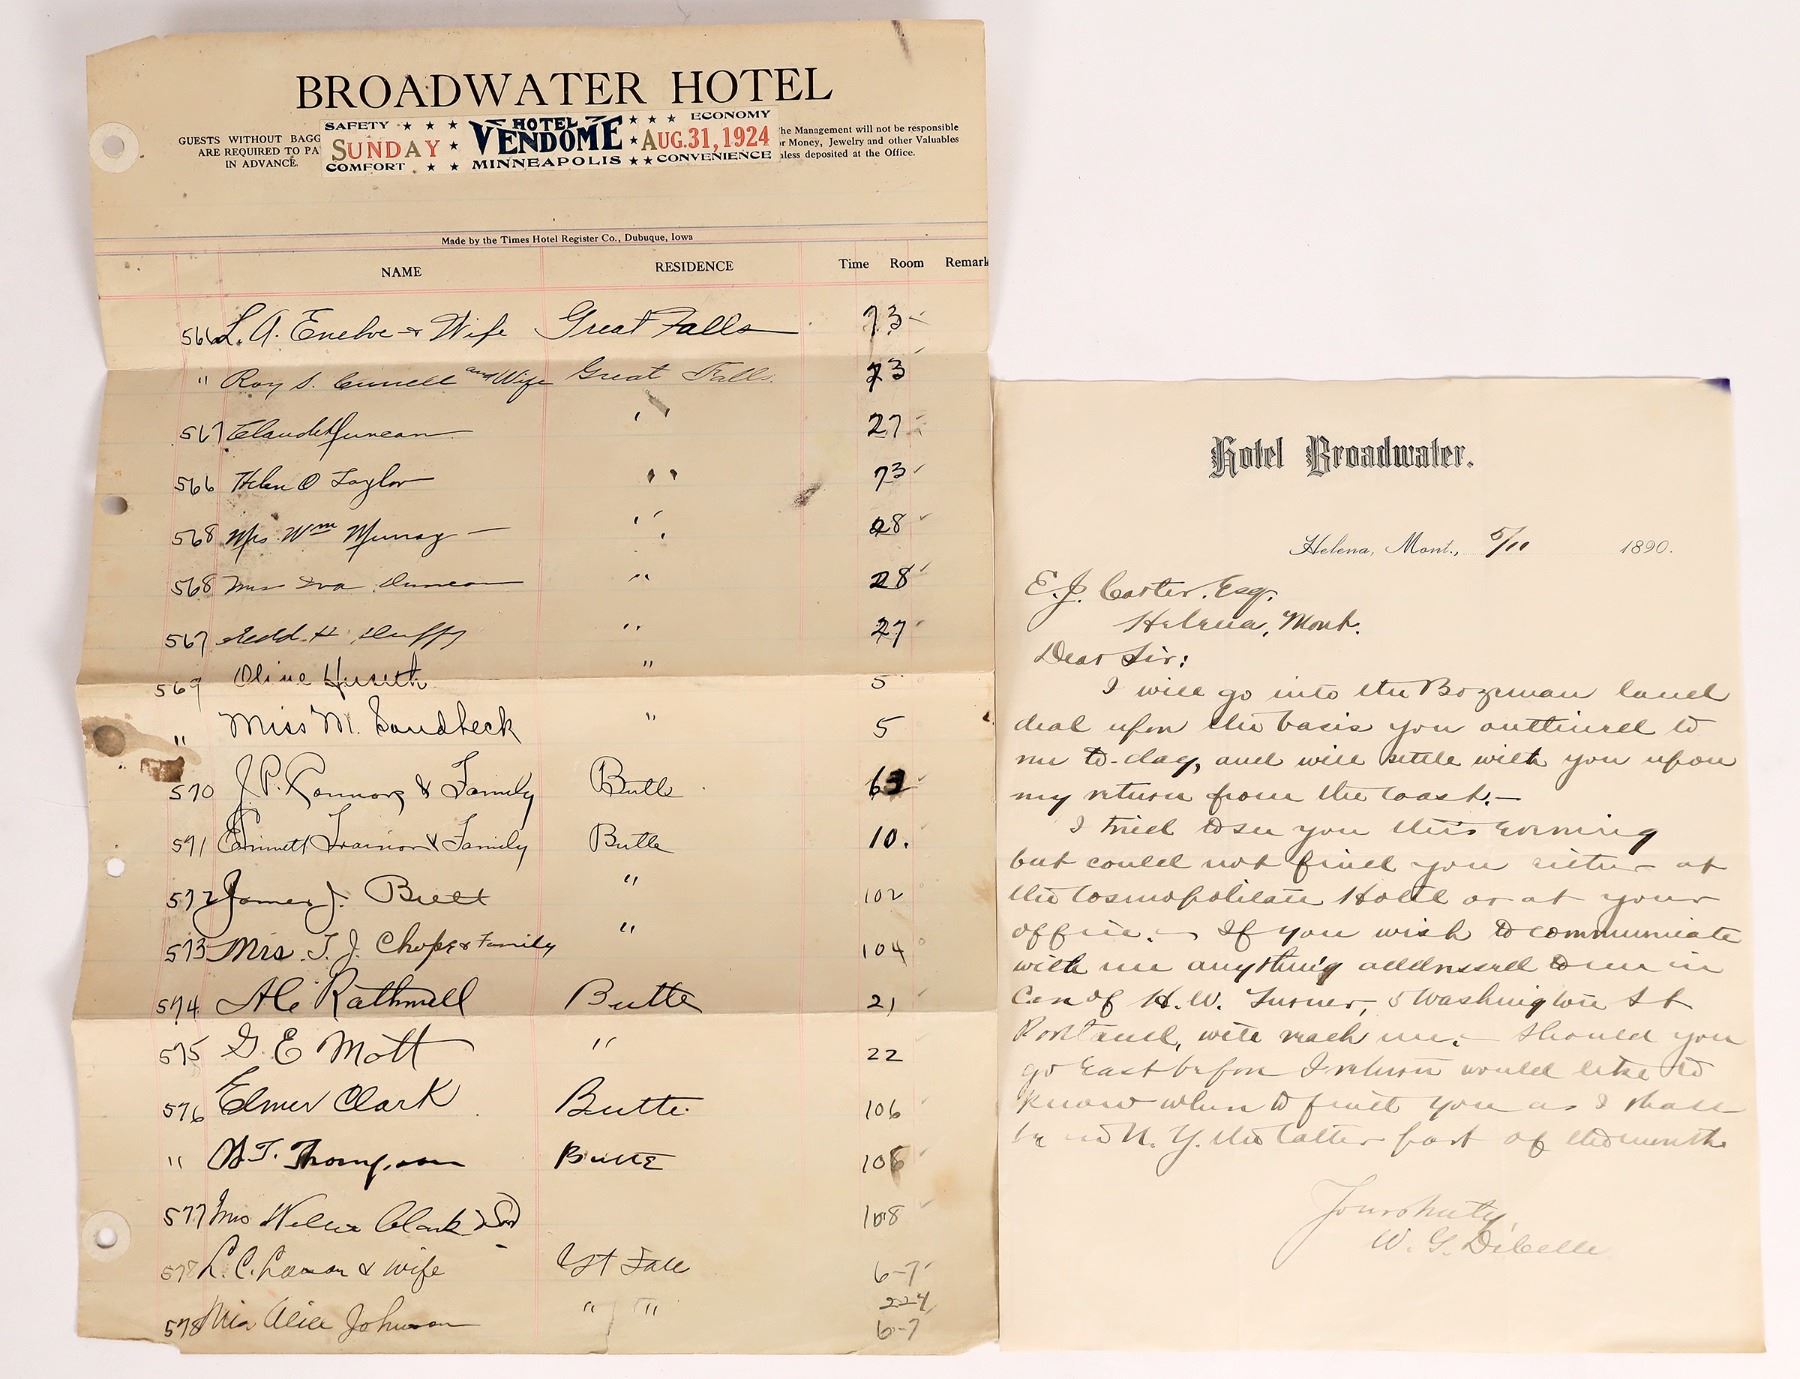 BROADWATER HOTEL
GUESTS WITHOUT BAGG
ARE REQUIRED TO PA
IN ADVANCE.
SAFETY ★ ★ ★ HOTEL ★ ★ ★ ECONOMY
SUNDAY ★ VENDOME ★ AUG. 31, 1924
COMFORT ★ ★ MINNEAPOLIS ★ ★ CONVENIENCE
he Management will not be responsible
r Money, Jewelry and other Valuables
nless deposited at the Office.
Made by the Times Hotel Register Co., Dubuque, Iowa
NAME RESIDENCE Time Room Remark
566 L. A. & Wife Great Falls 73
" Roy S. and Wife Great Falls 73
567 Claude Duncan " 27
566 Helen O Taylor " 73
568 Mrs. Wm Murray " 28
568 Mrs Iva Duncan " 28
567 H. Duffy " 27
569 Oline Huseth " 5
" Miss M. Sandbeck " 5
570 J. P. Connors & Family Butte 63
571 Emmett Trainor & Family Butte 10.
572 James J. Brett " 102
573 Mrs. T. J. Chope & Family " 104
574 Rathmell Butte 21
575 G. E Mott " 22
576 Elmer Clark Butte 106
" Thompson Butte 106
577 Mrs Clark & Son 108
578 L. C. & wife Gt Fall 6-7
224
578 Alice Johnson " " 6-7
Hotel Broadwater.
Helena, Mont., 5/11 1890.
E. J. Carter, Esq.
Helena, Mont.
Dear Sir:
I will go into the Bozeman land
deal upon the basis you outlined to
me to-day, and will settle with you upon
my return from the coast.—
I tried to see you this evening
but could not find you either at
the Cosmopolitan Hotel or at your
office.— If you wish to communicate
with me anything addressed to me in
Care of H. W. Turner, 5 Washington St
Portland, will reach me.— Should you
go East before I return would like to
know when to find you as I shall
be in N. Y. the latter part of the month
Yours truly,
W. G. DeCelle